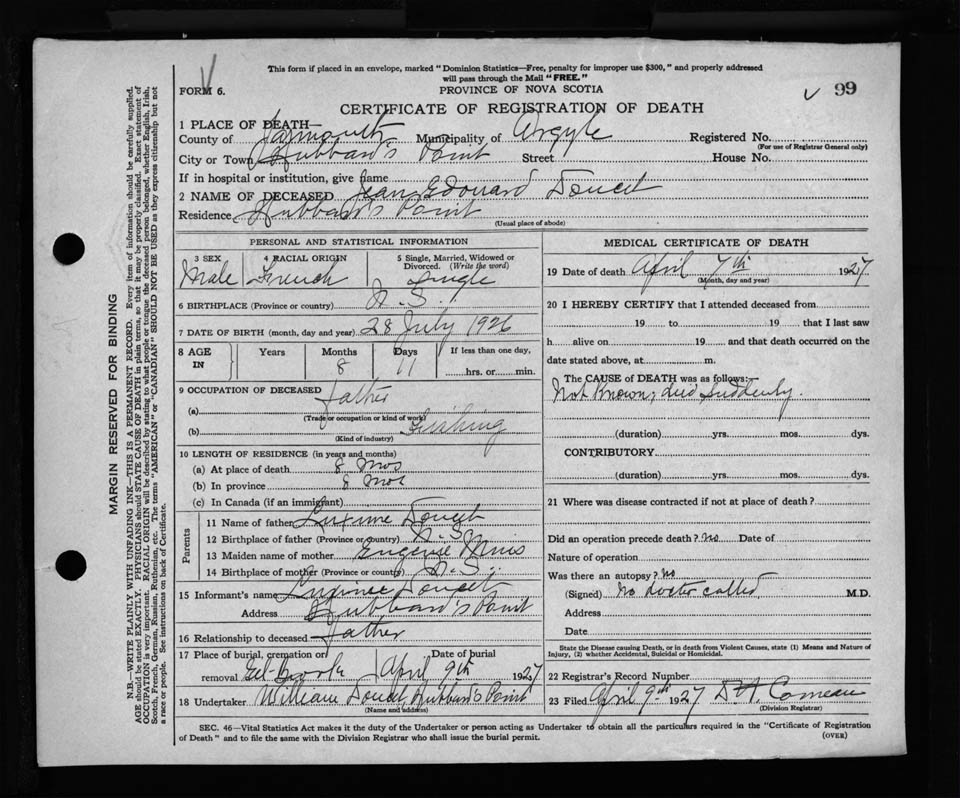 This form if placed in an envelope, marked "Dominion Statistics—Free, penalty for improper use $300," and properly addressed
will pass through the Mail "FREE."
FORM 6.
PROVINCE OF NOVA SCOTIA
99
CERTIFICATE OF REGISTRATION OF DEATH
1 PLACE OF DEATH—
County of Yarmouth Municipality of Argyle Registered No.
(For use of Registrar General only)
City or Town Hubbard's Point Street House No.
If in hospital or institution, give name
2 NAME OF DECEASED Jean Edouard Doucet
Residence Hubbard's Point
(Usual place of abode)
PERSONAL AND STATISTICAL INFORMATION
3 SEX 4 RACIAL ORIGIN 5 Single, Married, Widowed or Divorced. (Write the word)
Male French Single
6 BIRTHPLACE (Province or country) N.S.
7 DATE OF BIRTH (month, day and year) 28 July 1926
8 AGE IN Years Months Days If less than one day,
8 11 hrs. or min.
9 OCCUPATION OF DECEASED father
(a)
(Trade or occupation or kind of work)
(b) Fishing
(Kind of industry)
10 LENGTH OF RESIDENCE (in years and months)
(a) At place of death 8 Mos
(b) In province 8 Mos
(c) In Canada (if an immigrant)
Parents
11 Name of father Doucet
12 Birthplace of father (Province or country) N.S.
13 Maiden name of mother Eugenie
14 Birthplace of mother (Province or country) N.S.
15 Informant's name Doucet
Address Hubbard's Point
16 Relationship to deceased Father
17 Place of burial, cremation or removal Eel Brook Date of burial April 9th 1927
18 Undertaker William Doucet, Hubbard's Point
(Name and address)
MEDICAL CERTIFICATE OF DEATH
19 Date of death April 7th 1927
(Month, day and year)
20 I HEREBY CERTIFY that I attended deceased from
19 to 19 that I last saw
h alive on 19 and that death occurred on the
date stated above, at m.
The CAUSE OF DEATH was as follows:—
Not Known, died suddenly.
(duration) yrs. mos. dys.
CONTRIBUTORY
(duration) yrs. mos. dys.
21 Where was disease contracted if not at place of death?
Did an operation precede death? No Date of
Nature of operation
Was there an autopsy? No
(Signed) No doctor called M.D.
Address
Date
State the Disease causing Death, or in death from Violent Causes, state (1) Means and Nature of
Injury, (2) whether Accidental, Suicidal or Homicidal.
22 Registrar's Record Number
23 Filed April 9th 1927 Comeau
(Division Registrar)
SEC. 46—Vital Statistics Act makes it the duty of the Undertaker or person acting as Undertaker to obtain all the particulars required in the "Certificate of Registration
of Death" and to file the same with the Division Registrar who shall issue the burial permit.
(OVER)
MARGIN RESERVED FOR BINDING
N.B.—WRITE PLAINLY WITH UNFADING INK—THIS IS A PERMANENT RECORD. Every item of information should be carefully supplied.
AGE should be stated EXACTLY. PHYSICIANS should STATE CAUSE OF DEATH in plain terms, so that it may be properly classified. Exact statement of
OCCUPATION is very important. RACIAL ORIGIN will be described by stating to what people or tongue the deceased person belonged, whether English, Irish,
Scotch, French, German, Russian, Ruthenian, etc. The terms "AMERICAN" or "CANADIAN" SHOULD NOT BE USED as they express citizenship but not
a race or people. See instructions on back of Certificate.